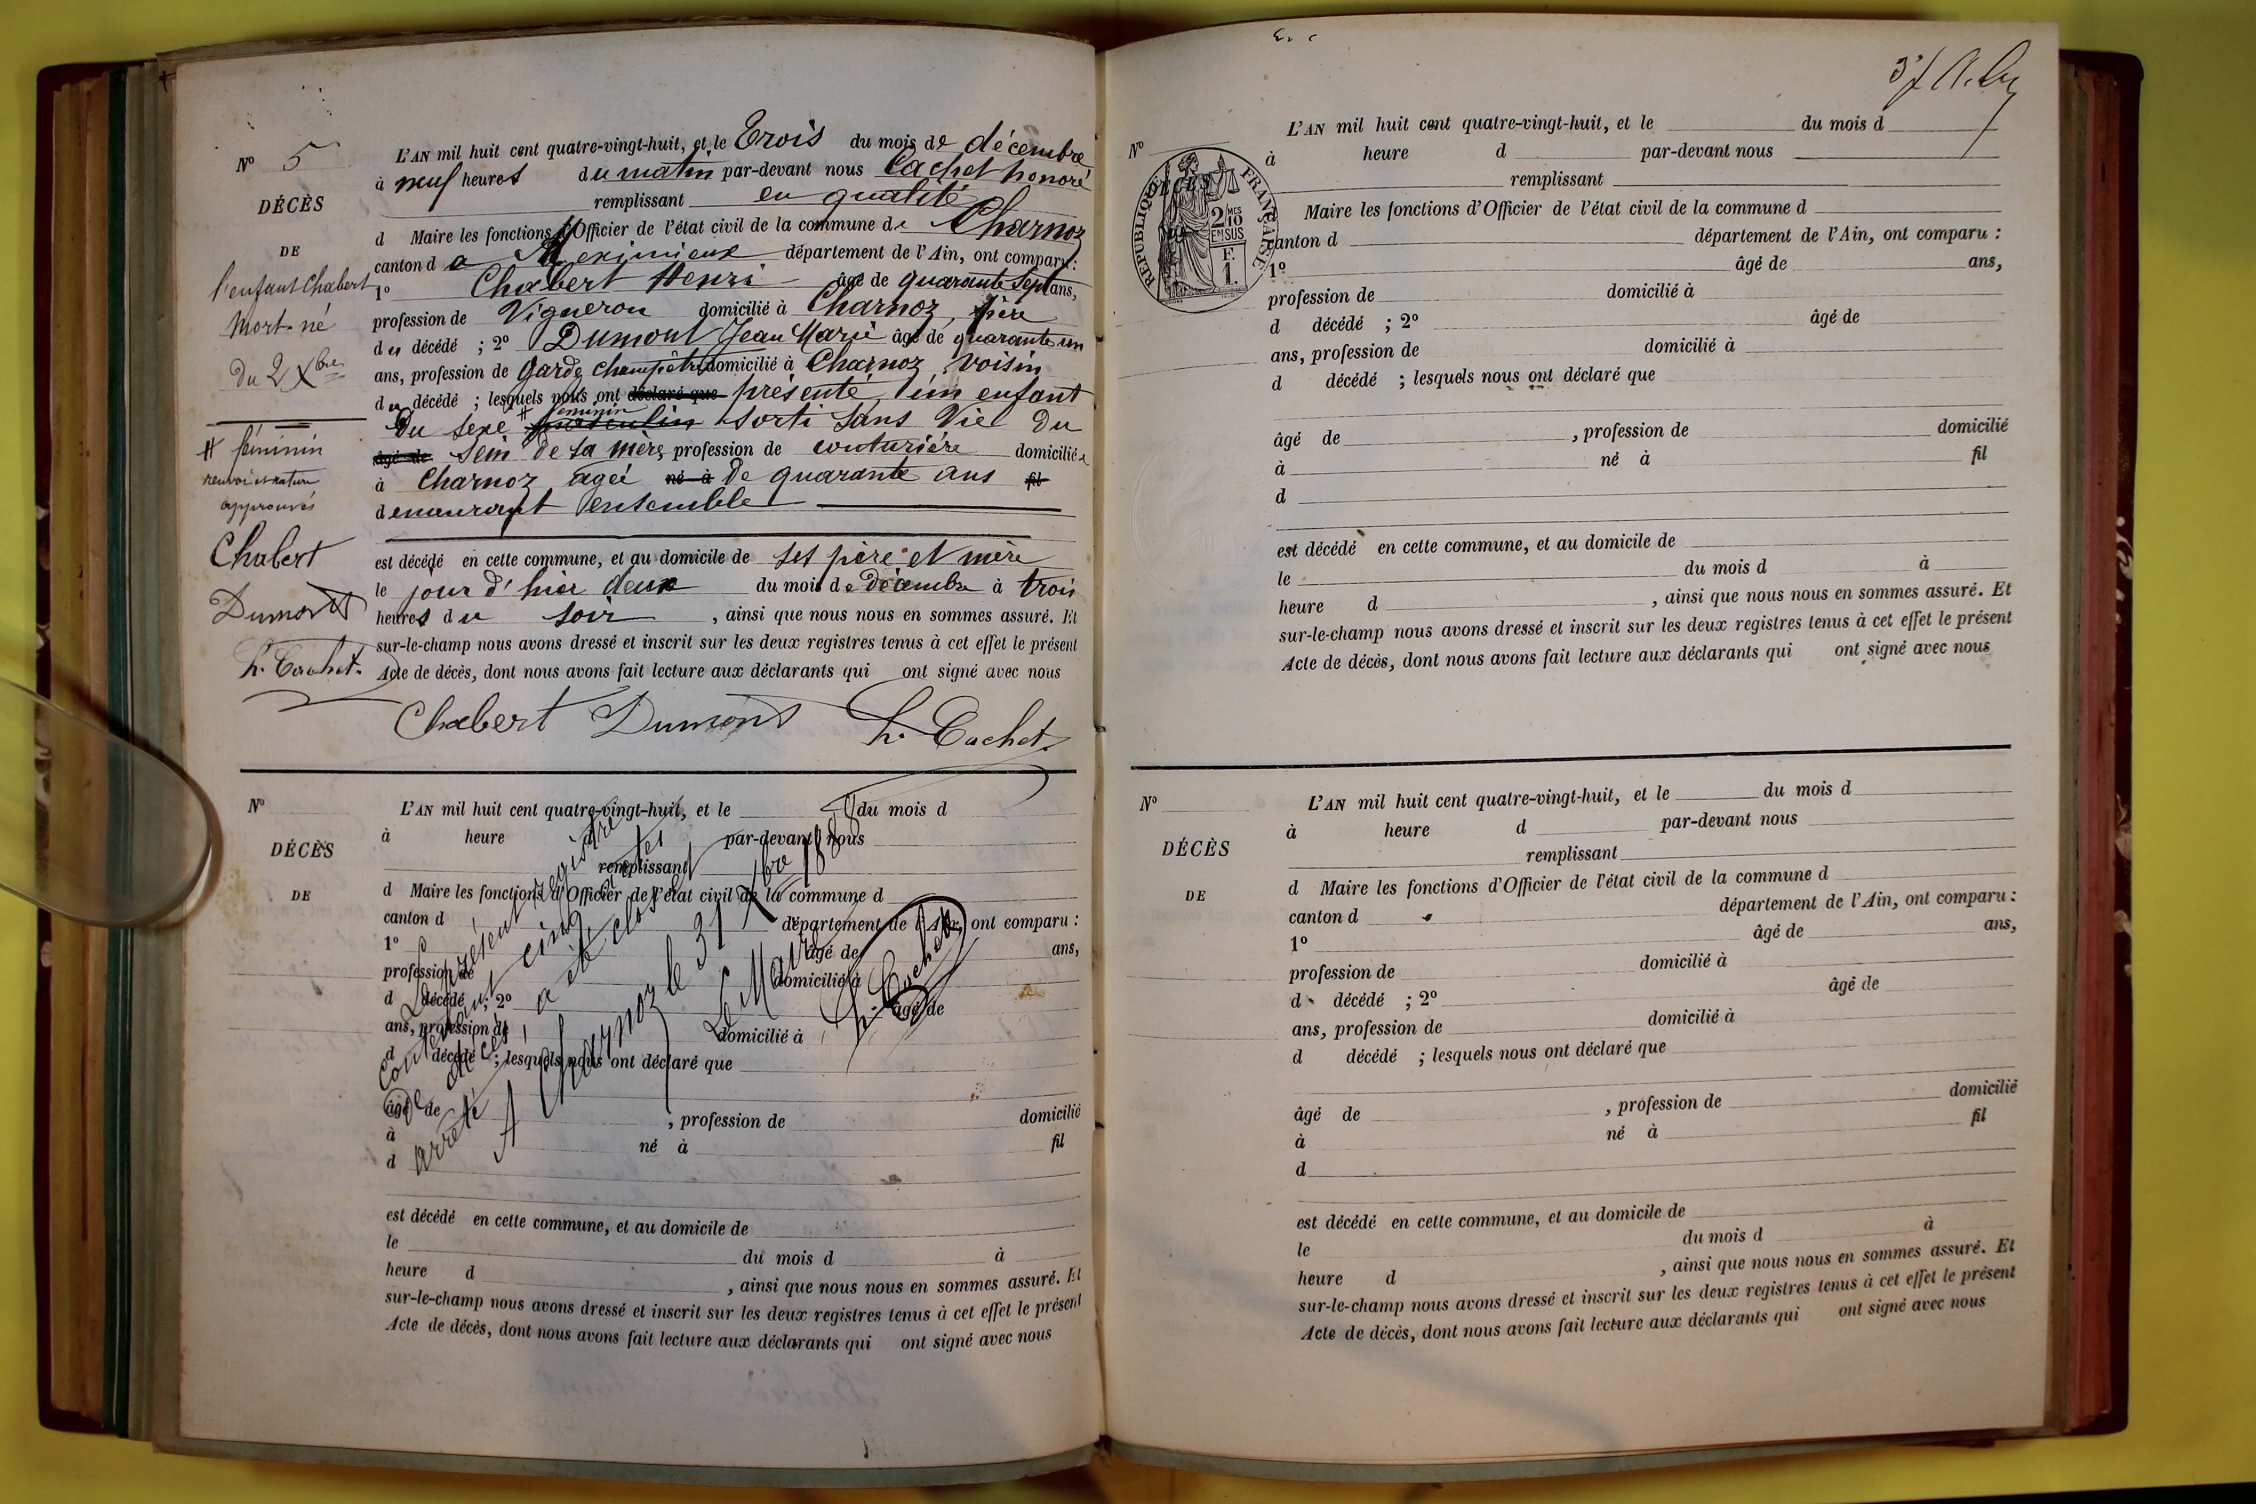 N° 5
DÉCÈS
DE
l'enfant Chabert
Mort-né
Du 2 Xbre
# féminin
renvoi et rature
approuvés
Chabert
Dumont
h. Cachet.
L'AN mil huit cent quatre-vingt-huit, et le Trois du mois de décembre
à neuf heures du matin par-devant nous Cachet honoré
remplissant en qualité
d Maire les fonctions d'Officier de l'état civil de la commune de Charnoz
canton d e Meximieux département de l'Ain, ont comparu :
1° Chabert Henri âgé de quarante sept ans,
profession de Vigneron domicilié à Charnoz, père
du décédé ; 2° Dumont Jean Marie âgé de quarante un
ans, profession de garde champêtre domicilié à Charnoz, voisin
du décédé ; lesquels nous ont déclaré que présenté un enfant
Du sexe # masculin féminin sorti sans Vie du
âgé de sein de sa mère, profession de couturiére domiciliée
à Charnoz ageé né à De quarante ans fil
demeurant ensemble
est décédé en cette commune, et au domicile de ses père et mère
le jour d'hier deux du mois de Décembre à trois
heures du soir , ainsi que nous nous en sommes assuré. Et
sur-le-champ nous avons dressé et inscrit sur les deux registres tenus à cet effet le présent
Acte de décès, dont nous avons fait lecture aux déclarants qui ont signé avec nous
Chabert Dumont h. Cachet.
N°
DÉCÈS
DE
L'AN mil huit cent quatre-vingt-huit, et le du mois d
à heure par-devant nous
remplissant
d Maire les fonctions d'Officier de l'état civil de la commune d
canton d département de l'Ain, ont comparu :
1° âgé de ans,
profession de domicilié à
d décédé ; 2° âgé de
ans, profession de domicilié à
d décédé ; lesquels nous ont déclaré que
âgé de , profession de domicilié
à né à fil
d
est décédé en cette commune, et au domicile de
le du mois d à
heure d , ainsi que nous nous en sommes assuré. Et
sur-le-champ nous avons dressé et inscrit sur les deux registres tenus à cet effet le présent
Acte de décès, dont nous avons fait lecture aux déclarants qui ont signé avec nous
Le présent registre
Contenant cinq actes
De décès, a été clos et
arrêté
A Charnoz le 31 Xbre 1888
Le Maire
h. Cachet
N°
RÉPUBLIQUE FRANÇAISE
2/10 MES
EN SUS
F.
1.
DÉCÈS
L'AN mil huit cent quatre-vingt-huit, et le du mois d
à heure d par-devant nous
remplissant
Maire les fonctions d'Officier de l'état civil de la commune d
canton d département de l'Ain, ont comparu :
1° âgé de ans,
profession de domicilié à
d décédé ; 2° âgé de
ans, profession de domicilié à
d décédé ; lesquels nous ont déclaré que
âgé de , profession de domicilié
à né à fil
d
est décédé en cette commune, et au domicile de
le du mois d à
heure d , ainsi que nous nous en sommes assuré. Et
sur-le-champ nous avons dressé et inscrit sur les deux registres tenus à cet effet le présent
Acte de décès, dont nous avons fait lecture aux déclarants qui ont signé avec nous
N°
DÉCÈS
DE
L'AN mil huit cent quatre-vingt-huit, et le du mois d
à heure d par-devant nous
remplissant
d Maire les fonctions d'Officier de l'état civil de la commune d
canton d département de l'Ain, ont comparu :
1° âgé de ans,
profession de domicilié à
d décédé ; 2° âgé de
ans, profession de domicilié à
d décédé ; lesquels nous ont déclaré que
âgé de , profession de domicilié
à né à fil
d
est décédé en cette commune, et au domicile de
le du mois d à
heure d , ainsi que nous nous en sommes assuré. Et
sur-le-champ nous avons dressé et inscrit sur les deux registres tenus à cet effet le présent
Acte de décès, dont nous avons fait lecture aux déclarants qui ont signé avec nous